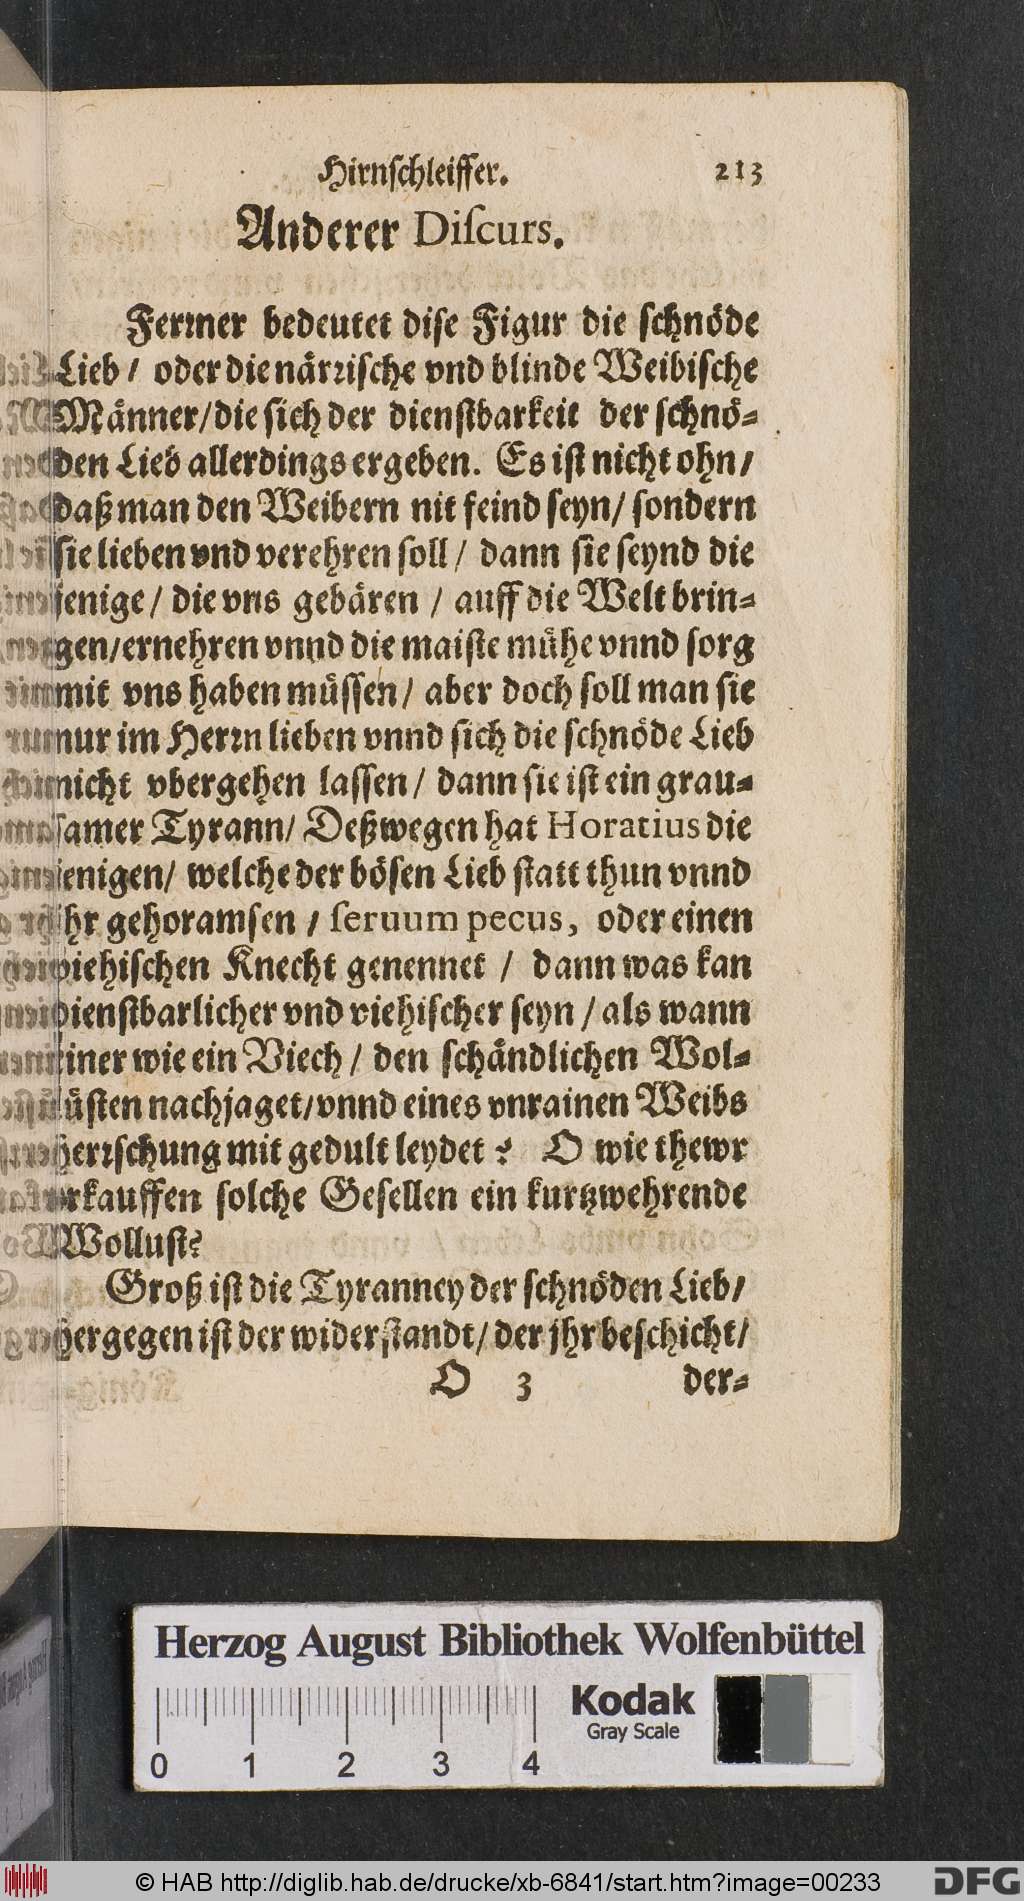 Hirnſchleiffer. 213
Anderer Diſcurs.
Fermer bedeutet diſe Figur die ſchnöde
Lieb / oder die närriſche vnd blinde Weibiſche
Männer/die ſich der dienſtbarkeit der ſchnö-
den Lieb allerdings ergeben. Es iſt nicht ohn/
daß man den Weibern nit feind ſeyn/ ſondern
ſie lieben vnd verehren ſoll / dann ſie ſeynd die
jenige / die vns gebären / auff die Welt brin-
gen/ernehren vnnd die maiſte mühe vnnd ſorg
mit vns haben müſſen / aber doch ſoll man ſie
nur im Herrn lieben vnnd ſich die ſchnöde Lieb
nicht vbergehen laſſen / dann ſie iſt ein grau-
ſamer Tyrann/ Deßwegen hat Horatius die
jenigen/ welche der böſen Lieb ſtatt thun vnnd
jhr gehoramſen / ſeruum pecus, oder einen
viehiſchen Knecht genennet / dann was kan
dienſtbarlicher vnd viehiſcher ſeyn / als wann
einer wie ein Viech / den ſchändlichen Wol-
lüſten nachjaget/vnnd eines vnrainen Weibs
herrſchung mit gedult leydet ? O wie thewr
erkauffen ſolche Geſellen ein kurtzwehrende
Wolluſt?
Groß iſt die Tyranney der ſchnöden Lieb/
hergegen iſt der widerſtandt/ der jhr beſchicht/
O 3 der-
Herzog August Bibliothek Wolfenbüttel
Kodak
Gray Scale
0 1 2 3 4
© HAB http://diglib.hab.de/drucke/xb-6841/start.htm?image=00233
DFG